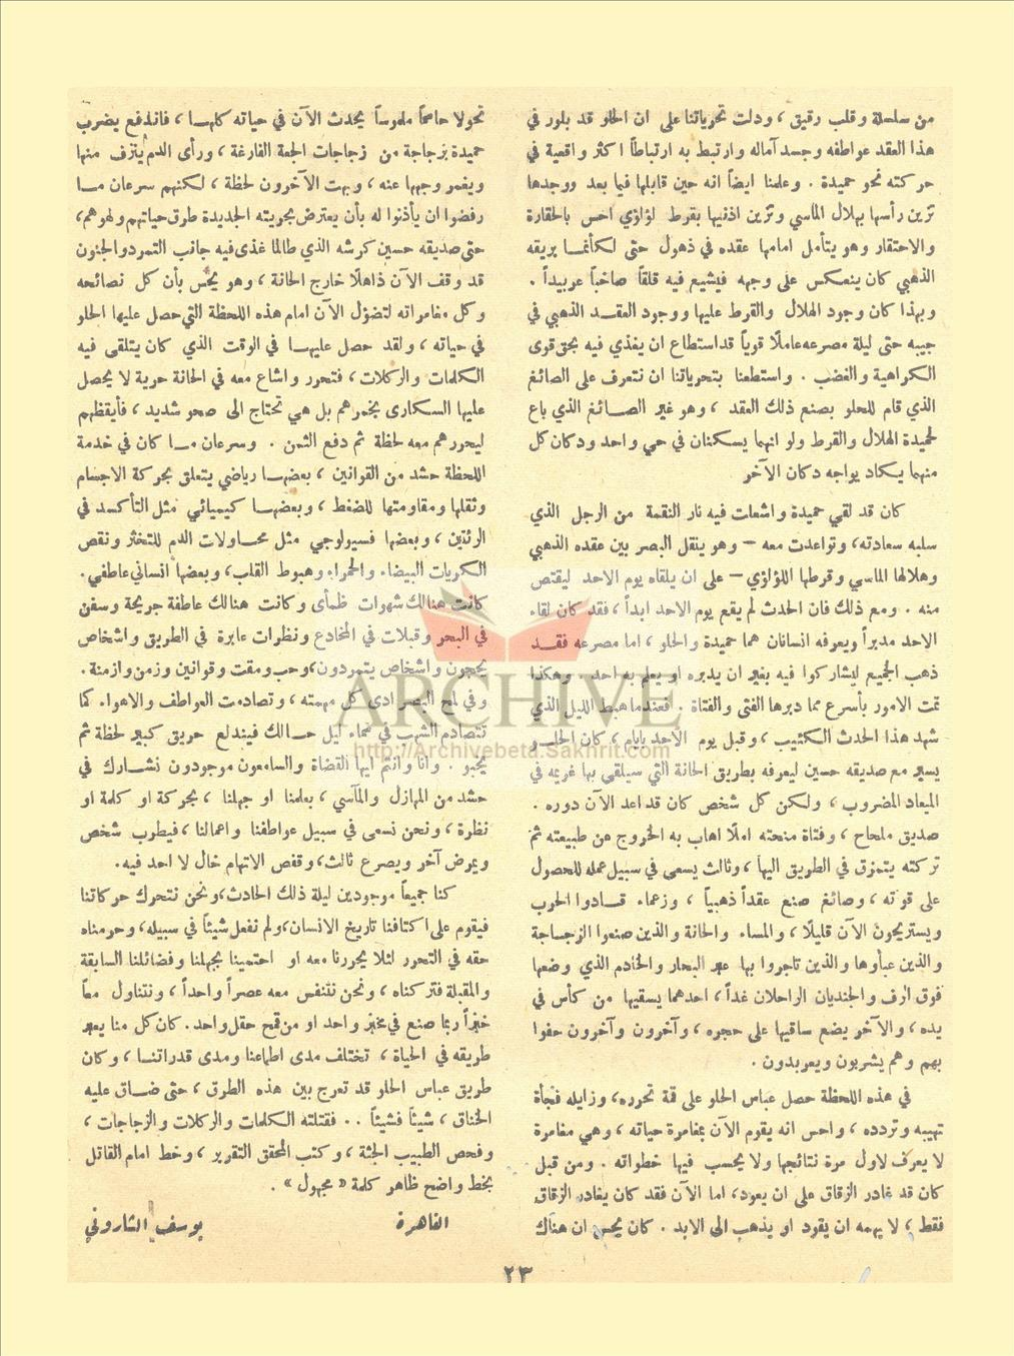 من سلسلة وقلب رقيق ، ودلت تحرياتنا على ان الحلو قد بلور في
هذا العقد عواطفه وجسد آماله وارتبط به ارتباطاً اكثر واقعية في
حركته نحو حميدة . وعلمنا ايضاً انه حين قابلها فيما بعد ووجدها
تزين رأسها بهلال الماسي وتزين اذنيها بقرط لؤلؤي احس بالحقارة
والاحتقار وهو يتأمل امامها عقده في ذهول حتى لكأنما بريقه
الذهبي كان ينعكس على وجهه فيشيع فيه قلقاً صاخباً عربيداً .
وبهذا كان وجود الهلال والقرط عليها ووجود العقد الذهبي في
جيبه حتى ليلة مصرعه عاملًا قوياً قد استطاع ان يغذي فيه بحق قوى
الكراهية والغضب . واستطعنا بتحرياتنا ان نتعرف على الصائغ
الذي قام للحلو بصنع ذلك العقد ، وهو غير الصائغ الذي باع
لحميدة الهلال والقرط ولو انهما يسكنان في حي واحد ودكان كل
منهما يكاد يواجه دكان الآخر
كان قد لقي حميدة واشعلت فيه نار النقمة من الرجل الذي
سلبه سعادته ، وتواعدت معه – وهو ينقل البصر بين عقده الذهبي
وهلالها الماسي وقرطها اللؤلؤي – على ان يلقاه يوم الاحد ليقتص
منه . ومع ذلك فان الحدث لم يقع يوم الاحد ابداً ، فقد كان لقاء
الاحد مدبراً ويعرفه انسانان هما حميدة والحلو ، اما مصرعه فقد
ذهب الجميع ليشاركوا فيه بغير ان يدبره او يعلم به احد . وهكذا
تمت الامور بأسرع مما دبرها الفتى والفتاة . فعندما هبط الليل الذي
شهد هذا الحدث الكئيب ، وقبل يوم الاحد بأيام ، كان الحلو
يسير مع صديقه حسين ليعرفه بطريق الحانة التي سيلقى بها غريمه في
الميعاد المضروب ، ولكن كل شخص كان قد اعد الآن دوره .
صديق ملحاح ، وفتاة منحته املًا اهاب به الخروج عن طبيعته ثم
تركته يتمزق في الطريق اليها ، وثالث يسعى في سبيل عمله للحصول
على قوته ، وصائغ صنع عقداً ذهبياً ، وزعماء قادوا الحرب
ويستريحون الآن قليلًا ، والمساء والحانة والذين صنعوا الزجاجة
والذين عبأوها والذين تاجروا بها عبر البحار والخادم الذي وضعها
فوق الرف والجنديان الراحلان غداً ، احدهما يسقيها من كأس في
يده ، والآخر يضع ساقيها على حجره ، وآخرون وآخرون حفوا
بهم وهم يشربون ويعربدون .
في هذه اللحظة حصل عباس الحلو على قمة تحرره ، وزايله فجأة
تهيبه وتردده ، واحس انه يقوم الآن بمغامرة حياته ، وهي مغامرة
لا يعرف لاول مرة نتائجها ولا يحسب فيها خطواته . ومن قبل
كان قد غادر الزقاق على ان يعود ، اما الآن فقد كان يغادر الزقاق
فقط ، لا يهمه ان يقود او يذهب الى الابد . كان يحس ان هناك
تحولا حاسماً ملموساً يحدث الآن في حياته كلها ، فاندفع يضرب
حميدة بزجاجة من زجاجات الجعة الفارغة ، ورأى الدم يتزف منها
ويغمر وجهها عنه ، وبهت الآخرون لحظة ، لكنهم سرعان ما
رفضوا ان يأذنوا له بأن يعترض بحريته الجديدة طرق حياتهم ولهوهم ،
حتى صديقه حسين كرشه الذي طالما غذى فيه جانب التمرد والجنون
قد وقف الآن ذاهلًا خارج الحانة ، وهو يحس بأن كل نصائحه
وكل مغامراته لتضؤل الآن امام هذه اللحظة التي حصل عليها الحلو
في حياته ، ولقد حصل عليها في الوقت الذي كان يتلقى فيه
الكلمات والركلات ، فتحرر واشاع معه في الحانة حرية لا يحصل
عليها السكارى بخمرهم بل هي تحتاج الى صحو شديد ، فأيقظهم
ليحررهم معه لحظة ثم دفع الثمن . وسرعان ما كان في خدمة
اللحظة حشد من القوانين ، بعضها رياضي يتعلق بحركة الاجسام
وثقلها ومقاومتها للضغط ، وبعضها كيميائي مثل التأكسد في
الرئتين ، وبعضها فسيولوجي مثل محاولات الدم للتخثر ونقص
الكريات البيضاء والحمراء وهبوط القلب ، وبعضها انساني عاطفي .
كانت هنالك شهوات ظمأى وكانت هنالك عاطفة جريحة وسفن
في البحر وقبلات في المخادع ونظرات عابرة في الطريق واشخاص
يحجون واشخاص يتمردون ، وحب ومقت وقوانين وزمن وازمنة .
وفي لمح البصر ادى كل مهمته ، وتصادمت العواطف والاهواء كما
تتصادم الشهب في سماء ليل حالك فيندلع حريق كبير لحظة ثم
يخبو . وانا وانتم ايها القضاة والسامعون موجودون نشارك في
حشد من المهازل والمآسي ، بعلمنا او جهلنا ، بحركة او كلمة او
نظرة ، ونحن نسعى في سبيل عواطفنا واعمالنا ، فيطرب شخص
ويمرض آخر ويصرع ثالث ، وقفص الاتهام خال لا احد فيه .
كنا جميعاً موجودين ليلة ذلك الحادث ، ونحن نتحرك حركاتنا
فيقوم على اكتافنا تاريخ الانسان ، ولم نفعل شيئاً في سبيله ، وحرمناه
حقه في التحرر لئلا يحررنا معه او احتمينا بجهلنا وفضائلنا السابقة
والمقبلة فتركناه ، ونحن نتنفس معه عصراً واحداً ، ونتناول معاً
خبزاً ربما صنع في مخبز واحد او من قمح حقل واحد . كان كل منا يعبر
طريقه في الحياة ، تختلف مدى اطماعنا ومدى قدراتنا ، وكان
طريق عباس الحلو قد تعرج بين هذه الطرق ، حتى ضاق عليه
الخناق ، شيئاً فشيئاً . . فقتلته الكلمات والركلات والزجاجات ،
وفحص الطبيب الجثة ، وكتب المحقق التقرير ، وخط امام القاتل
بخط واضح ظاهر كلمة « مجهول » .
القاهرة يوسف الشاروني
ARCHIVE
http://Archivebeta.Sakhrit.com
٢٣